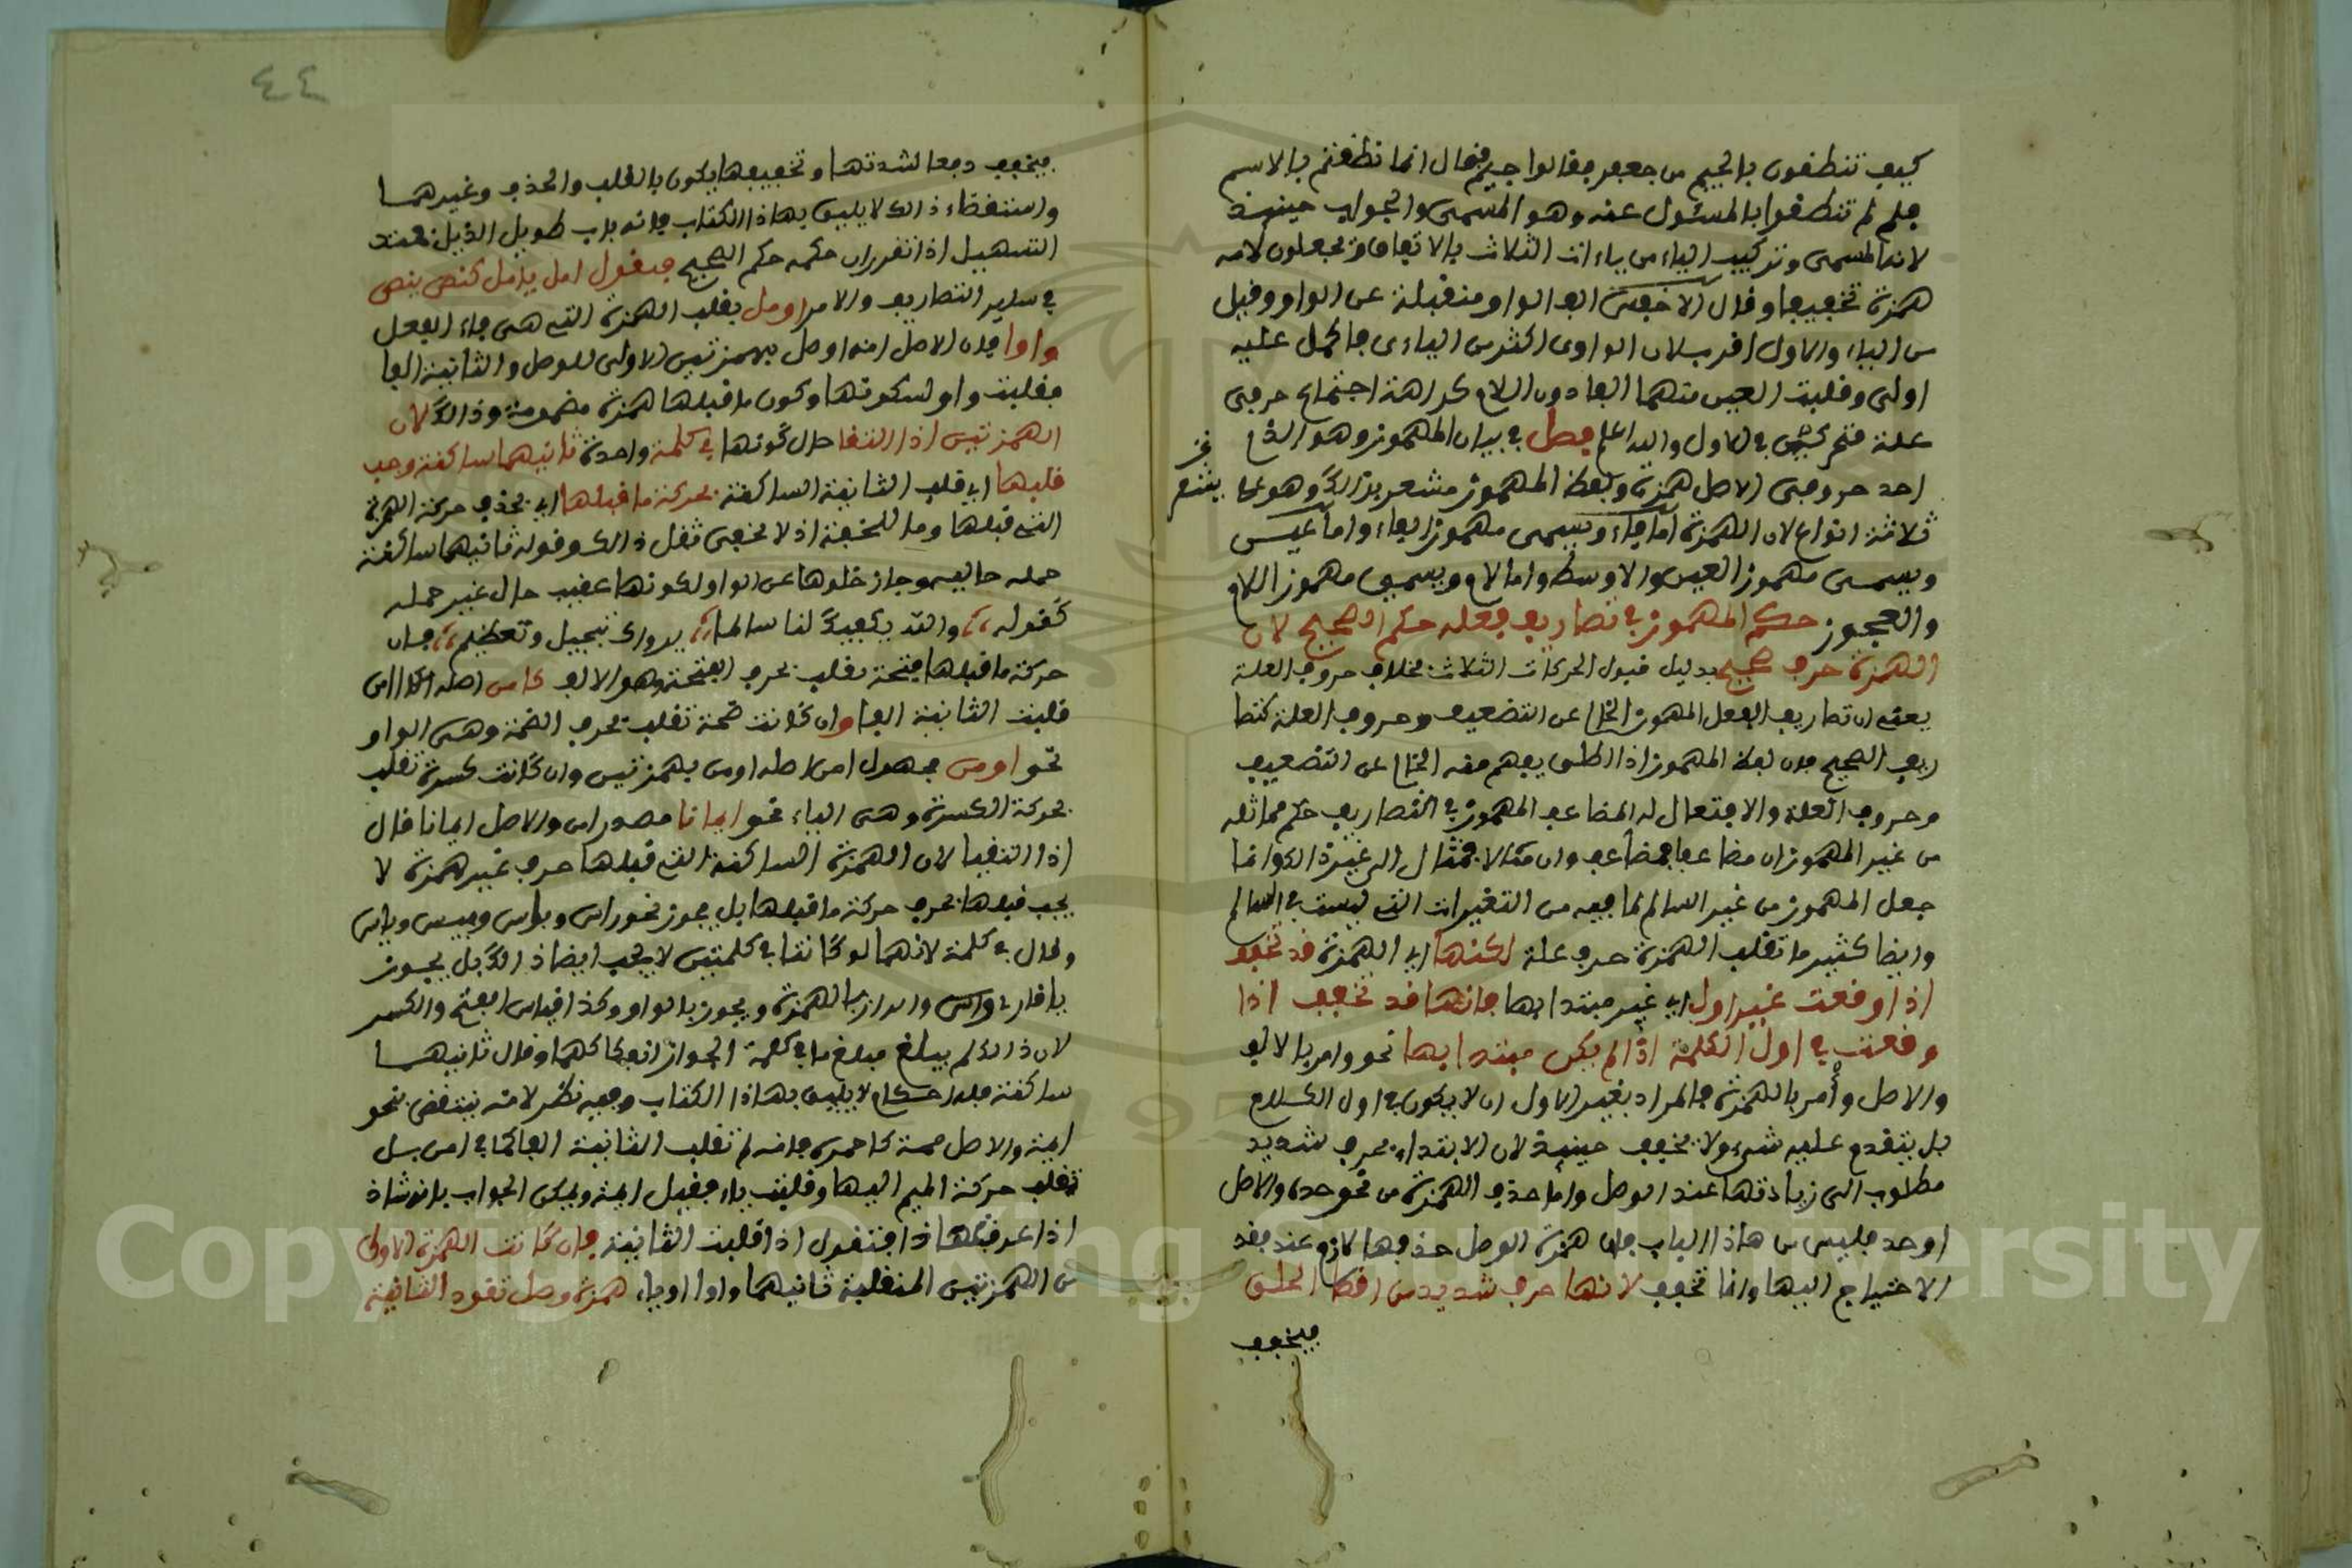 كيف تنطقون بالجيم من جعفر فقالوا جيم فقال انما نطقتم بالاسم
فلم لم تنطقوا بالمسئول عنه وهو المسمى والجواب حينئذ
لانه المسمى وتركيب الياء من ياءات الثلاث بالاتفاق ويجعلون لامه
همزة تخفيفا وقال الاخفش الف الواو منقبلة عن الواو وقيل
من الياء والاول اقرب لان الواوى اكثر من الياءى فالحمل عليه
اولى وقلبت العين منهما الفا دون اللام كراهة اجتماع حرفى
علة متحركين في الاول والله اعلم فصل في بيان المهموز وهو الذى
احد حروفى الاصل همزة ولفظ المهموز مشعر بذالك وهو على
ثلاثة انواع لان الهمزة اما فاء ويسمى مهموز الفاء واما عين
ويسمى مهموز العين والاوسط واما لام ويسمى مهموز اللام
والعجوز حكم المهموز في تصاريف فعله حكم الصحيح لان
الهمزة حرف صحيح بدليل قبول الحركات الثلاث بخلاف حروف العلة
يعنى ان تصاريف الفعل المهموز الخالى عن التضعيف وحروف العلة كتصا
ريف الصحيح فان لفظ المهموز اذا اطلق يفهم منه الخالى عن التضعيف
وحروف العلة والا فتعال له المضاعف المهموز في التصاريف حكم مماثله
من غير المهموز ان مضاعفا فمضاعف وان مثالا فمثال الى غير ذالك وانما
جعل المهموز من غير السالم لما فيه من التغيرات التى ليست في السالم
وايضا كثير ما تقلب الهمزة حرف علة لكنها اي الهمزة قد تخفف
اذا وقعت غير اول اي غير مبتدا بها فانها قد تخفف اذا
وقعت في اول الكلمة اذا لم يكن مبتدا بها نحو وامر بالالف
والاصل وأمر بالهمزة فالمراد بغير الاول ان لا يكون في اول الكلام
بل يتقدم عليه شيء ولا يخفف حينئذ لان الابتداء بحرف شديد
مطلوب الى زيادتها عند الوصل واما حذف الهمزة من نحو حدة والاصل
اوحد فليس من هاذا الباب فان همزة الوصل حذفها لازم عند فقد
الاحتياج اليها وانما تخفف لانها حرف شديد من اقصا الحلق
فيخفف
٤٤
فيخفف دفعا لشدتها وتخفيفها يكون بالقلب والحذف وغيرهما
واستقصاء ذالك لا يليق بهاذا الكتاب فانه باب طويل الذيل فعند
التسهيل اذا تقرر ان حكمه حكم الصحيح فيقول امل يامل كنصر ينصر
في ساير التصاريف والامر اومل بقلب الهمزة التى هى فاء الفعل
واوا فان الاصل انه اومل بهمزتين الاولى للوصل والثانية الفا
فقلبت واو لسكونها وكون ما قبلها همزة مضمومة وذالك لان
الهمزتين اذا التقا حال كونها في كلمة واحدة ثانيهما ساكنة وجب
قلبها اي قلب الثانية الساكنة بحركة ما قبلها اي بحذف حركة الهمزة
التى قبلها وما للخفة اذ لا يخفى ثقل ذالك وقوله ثانيهما ساكنة
جملة حالية وجاز خلوها عن الواو لكونها عقيب حال غير جملة
كقوله والله يبقيك لنا سالما برداك تبجيل وتعظيم فان
حركة ما قبلها فتحة تقلب بحرف الفتحة وهو الالف كامن اصله اامن
قلبت الثانية الفا وان كانت ضمة تقلب بحرف الضمة وهى الواو
نحو اومن مجهول امن اصله اومن بهمزتين وان كانت كسرة تقلب
بحركة الكسرة وهى الياء نحو ايمانا مصدر امن والاصل ايمانا قال
اذا التقيا لان الهمزة الساكنة التى قبلها حرف غير همزة لا
يجب قبلها بحرف حركة ما قبلها بل يجوز نحو راس وبوس وبيس وياس
وقال في كلمة لانهما لو كانتا في كلمتين لا يجب ايضا ذالك بل يجوز
لان ذالك لم يبلغ مبلغ ما في كلمة
ساكنة لا يليق بهاذا الكتاب وفيه نظر لانه ينتقض بنحو
ايمة والاصل فانه لم تقلب الثانية الفا كما في امن بل
تقلب حركة الميم اليها وقلبت ياء فقيل ايمة ويمكن الجواب بانه شاذ
اذا عرفت هاذا فنقول اذا قلبت الثانية فان كانت الهمزة الاولى
من الهمزتين المنقلبة ثانيهما واوا اوياء همزة وصل تعود الثانية